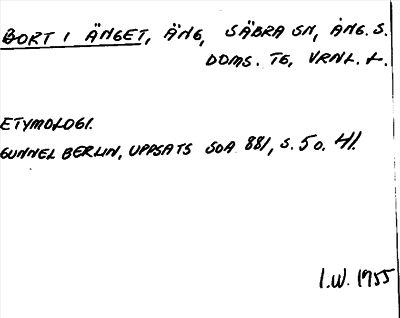 BORT I ÄNGET, ÄNG, SÄBRA SN, ÅNG. S.
DOMS. TG, VRNL. L.
ETYMOLOGI.
GUNNEL BERLIN, UPPSATS SOA 881, S. 50. 41.
I.W. 1955